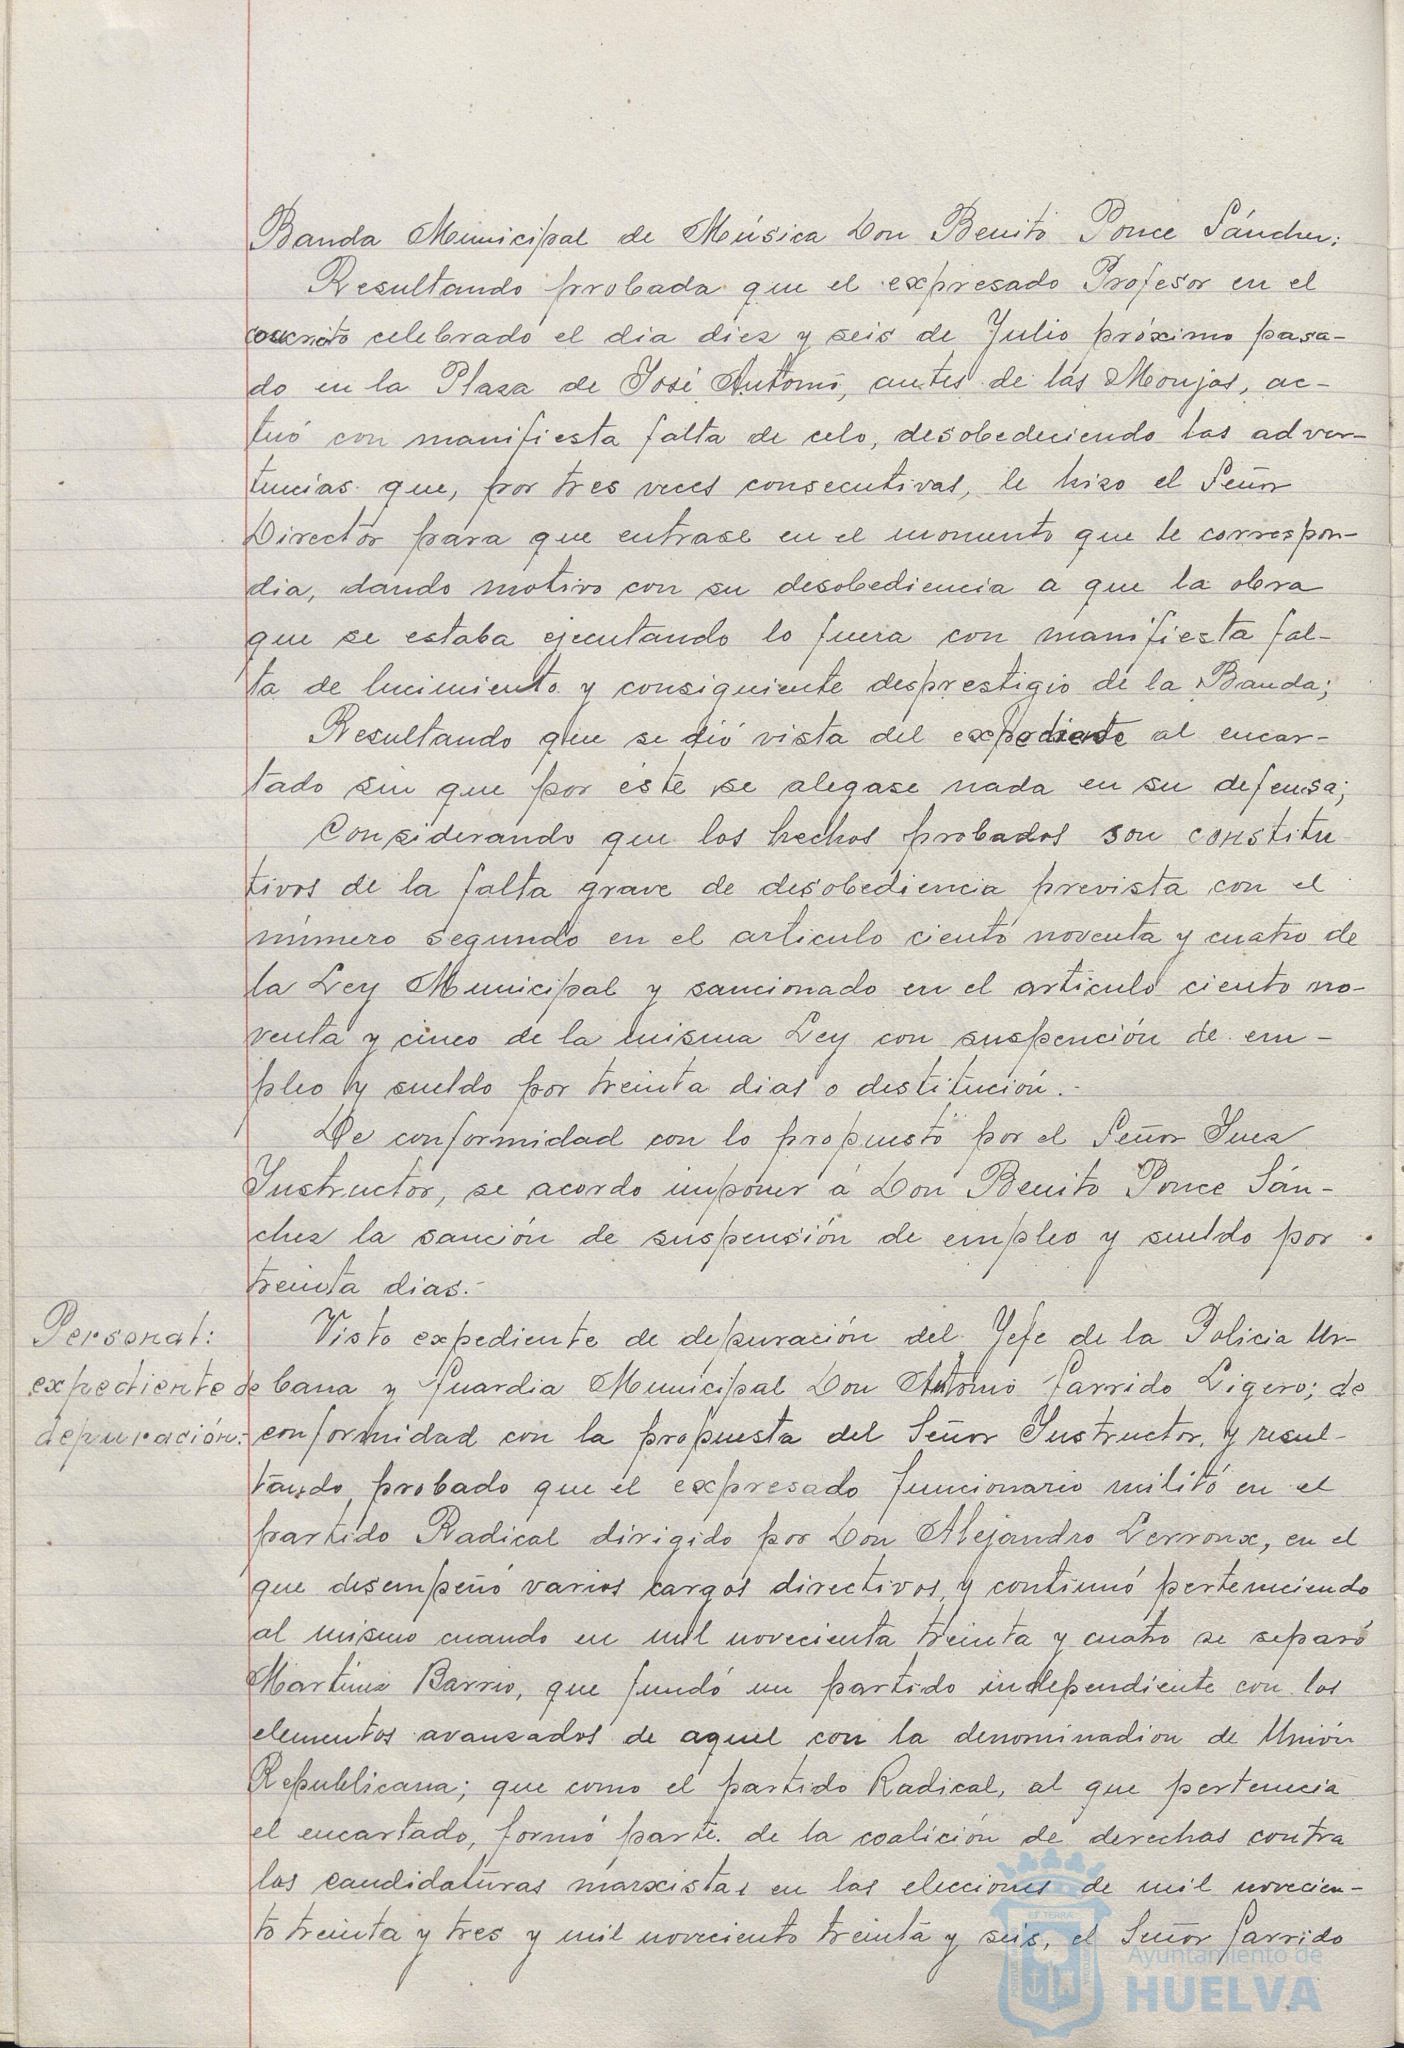 Banda Municipal de Música Don Benito Ponce Sánchez;
Resultando probada que el expresado Profesor en el
concierto celebrado el dia diez y seis de Julio próximo pasa-
do en la Plaza de José Antonio, antes de las Monjas, ac-
tuó con manifiesta falta de celo, desobedeciendo las adver-
tencias que, por tres veces consecutivas, le hizo el Señor
Director para que entrase en el momento que le correspon-
dia, dando motivo con su desobediencia a que la obra
que se estaba ejecutando lo fuera con manifiesta fal-
ta de lucimiento y consiguiente desprestigio de la Banda;
Resultando que se dió vista del expediente al encar-
tado sin que por éste se alegase nada en su defensa;
Considerando que los hechos probados son constitu
tivos de la falta grave de desobediencia prevista con el
número segundo en el articulo ciento noventa y cuatro de
la Ley Municipal y sancionado en el articulo ciento no-
venta y cinco de la misma Ley con suspención de em-
pleo y sueldo por treinta dias o destitución.-
De conformidad con lo propuesto por el Señor Juez
Instructor, se acordo imponer á Don Benito Ponce Sán-
chez la sanción de suspensión de empleo y sueldo por
treinta dias.-
Personal:
expediente de
depuración.-
Visto expediente de depuración del Jefe de la Policia Ur-
bana y Guardia Municipal Don Antonio Garrido Ligero; de
conformidad con la propuesta del Señor Instructor, y resul-
tando probado que el expresado funcionario militó en el
partido Radical dirigido por Don Alejandro Lerroux, en el
que desempeñó varios cargos directivos, y continuó perteneciendo
al mismo cuando en mil novecienta treinta y cuatro se separó
Martínez Barrio, que fundó un partido independiente con los
elementos avanzados de aquel con la denominadion de Unión
Republicana; que como el partido Radical, al que pertenecia
el encartado, formó parte de la coalición de derechas contra
las candidaturas marxistas en las elecciones de mil novecien-
to treinta y tres y mil noveciento treinta y seis, el Señor Garrido
Ayuntamiento de
HUELVA